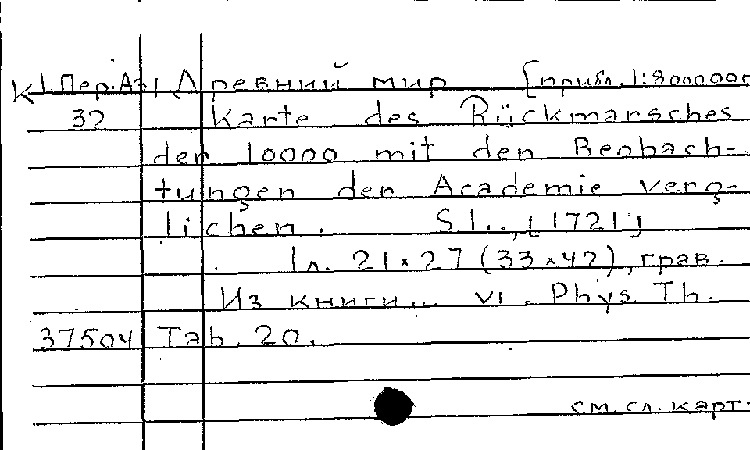 К 1 Пер.Аз 1 Древний мир [прибл. 1:8000000
32 Karte des Rückmarsches
der 10000 mit den Beobach-
tungen der Academie verg-
lichen. S.l., [1721]
1 л. 21×27 (33×42), грав.
Из книги... VI. Phys. Th.
37504 Tab. 20.
см. сл. карт.